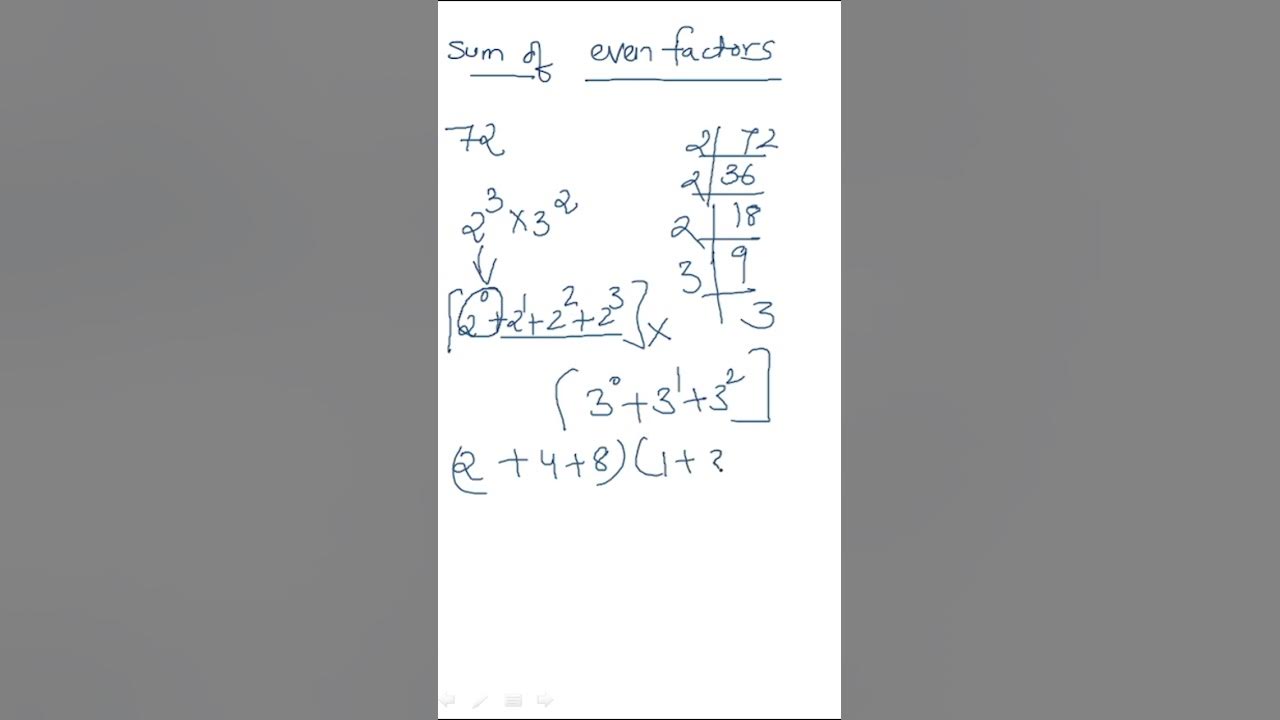 Sum of even factors
72
2 | 72
2 | 36
2³ × 3²
2 | 18
3 | 9
3
[2⁰ + 2¹ + 2² + 2³] ×
[3⁰ + 3¹ + 3²]
(2 + 4 + 8) (1 +